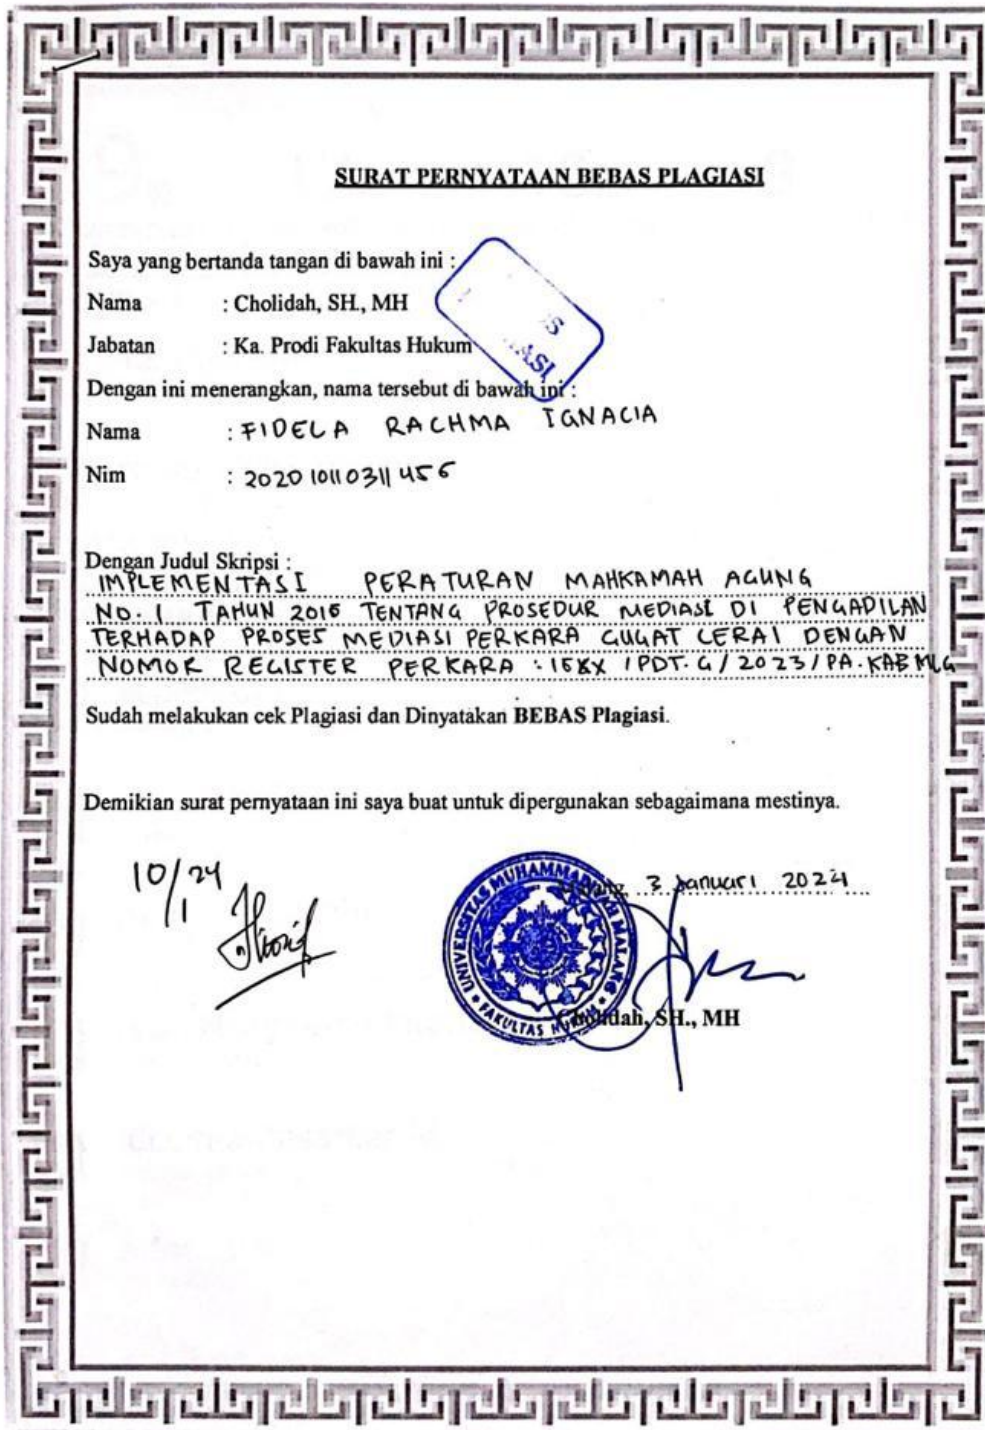 SURAT PERNYATAAN BEBAS PLAGIASI
Saya yang bertanda tangan di bawah ini :
Nama : Cholidah, SH., MH
Jabatan : Ka. Prodi Fakultas Hukum
Dengan ini menerangkan, nama tersebut di bawah ini :
Nama : FIDELA RACHMA IGNACIA
Nim : 202010110311456
Dengan Judul Skripsi :
IMPLEMENTASI PERATURAN MAHKAMAH AGUNG
NO. 1 TAHUN 2016 TENTANG PROSEDUR MEDIASI DI PENGADILAN
TERHADAP PROSES MEDIASI PERKARA GUGAT CERAI DENGAN
NOMOR REGISTER PERKARA : /PDT.G/2023/PA.KAB MLG
Sudah melakukan cek Plagiasi dan Dinyatakan BEBAS Plagiasi.
Demikian surat pernyataan ini saya buat untuk dipergunakan sebagaimana mestinya.
10/1 24
Malang, 3 Januari 2024
UNIVERSITAS MUHAMMADIYAH MALANG
FAKULTAS HUKUM
Cholidah, SH., MH